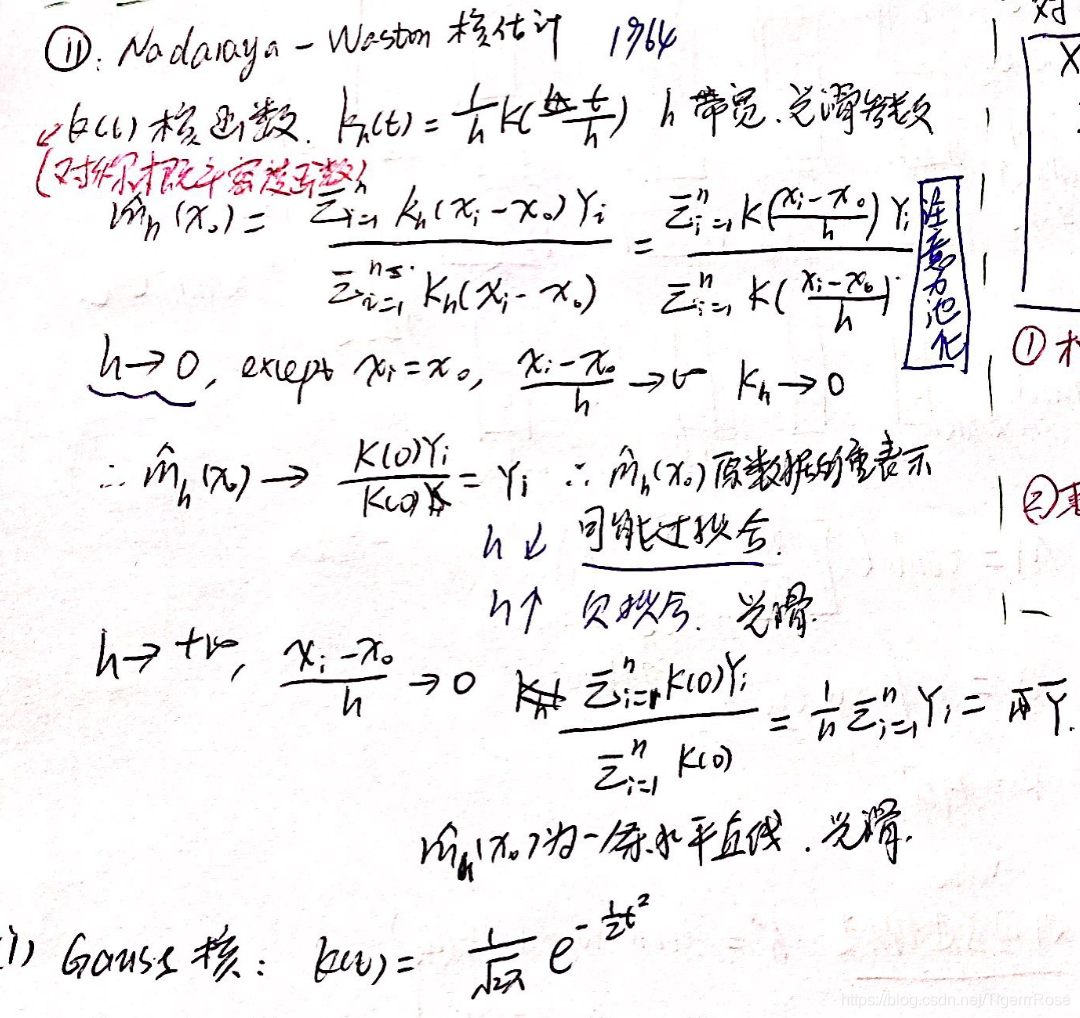 ⑪: Nadaraya - Waston 核估计 1964
K(t) 核函数. Kₕ(t) = 1/h K(t/h) h 带宽. 光滑参数
(对称概率密度函数)
m̂ₕ(x₀) = Σᵢ₌₁ⁿ Kₕ(xᵢ-x₀)Yᵢ / Σᵢ₌₁ⁿ Kₕ(xᵢ-x₀) = Σᵢ₌₁ⁿ K((xᵢ-x₀)/h) Yᵢ / Σᵢ₌₁ⁿ K((xᵢ-x₀)/h)
注意力池化
h→0, except xᵢ=x₀, (xᵢ-x₀)/h → ∞ Kₕ→0
∴ m̂ₕ(x₀) → K(0)Yᵢ / K(0) = Yᵢ ∴ m̂ₕ(x₀) 原数据的重表示
h↓ 可能过拟合.
h↑ 欠拟合. 光滑.
h→+∞, (xᵢ-x₀)/h → 0 Σᵢ₌₁ⁿ K(0)Yᵢ / Σᵢ₌₁ⁿ K(0) = 1/n Σᵢ₌₁ⁿ Yᵢ = Ȳ.
m̂ₕ(x₀)为一条水平直线. 光滑.
i) Gauss 核: K(t) = 1/√2π e^(-½t²)
对
X
①
②
https://blog.csdn.net/TigerrrRose